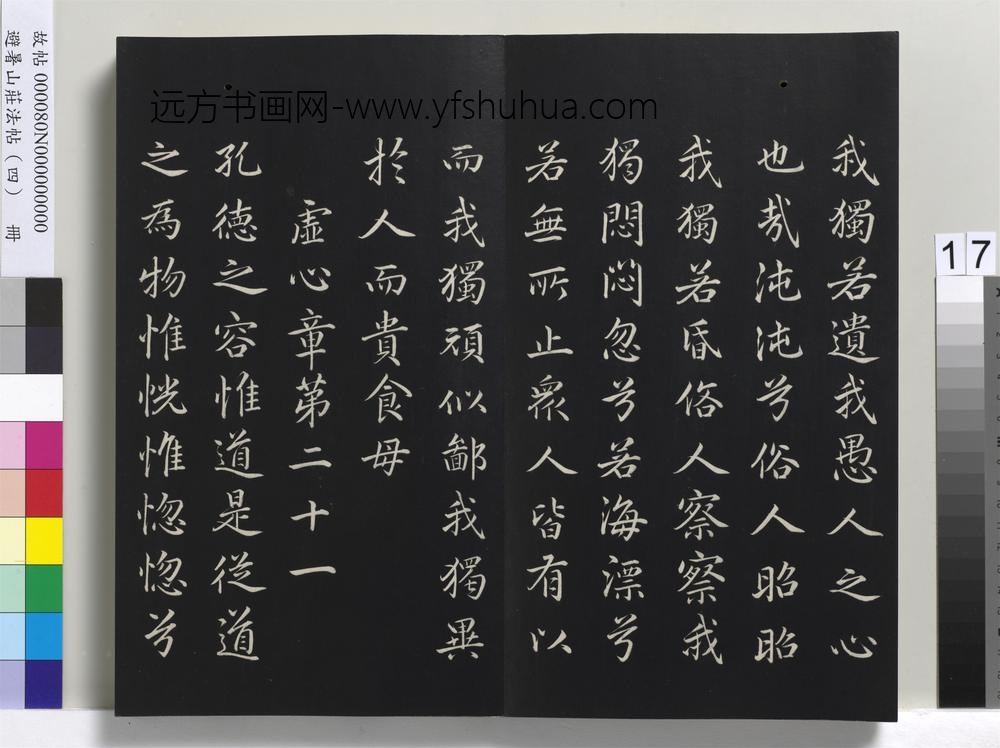 我獨若遺我愚人之心
也哉沌沌兮俗人昭昭
我獨若昏俗人察察我
獨悶悶忽兮若海漂兮
若無所止衆人皆有以
而我獨頑似鄙我獨異
於人而貴食母
虛心章第二十一
孔德之容惟道是從道
之為物惟恍惟惚惚兮
远方书画网-www.yfshuhua.com
故帖 000080N000000000
避暑山莊法帖(四) 冊
17